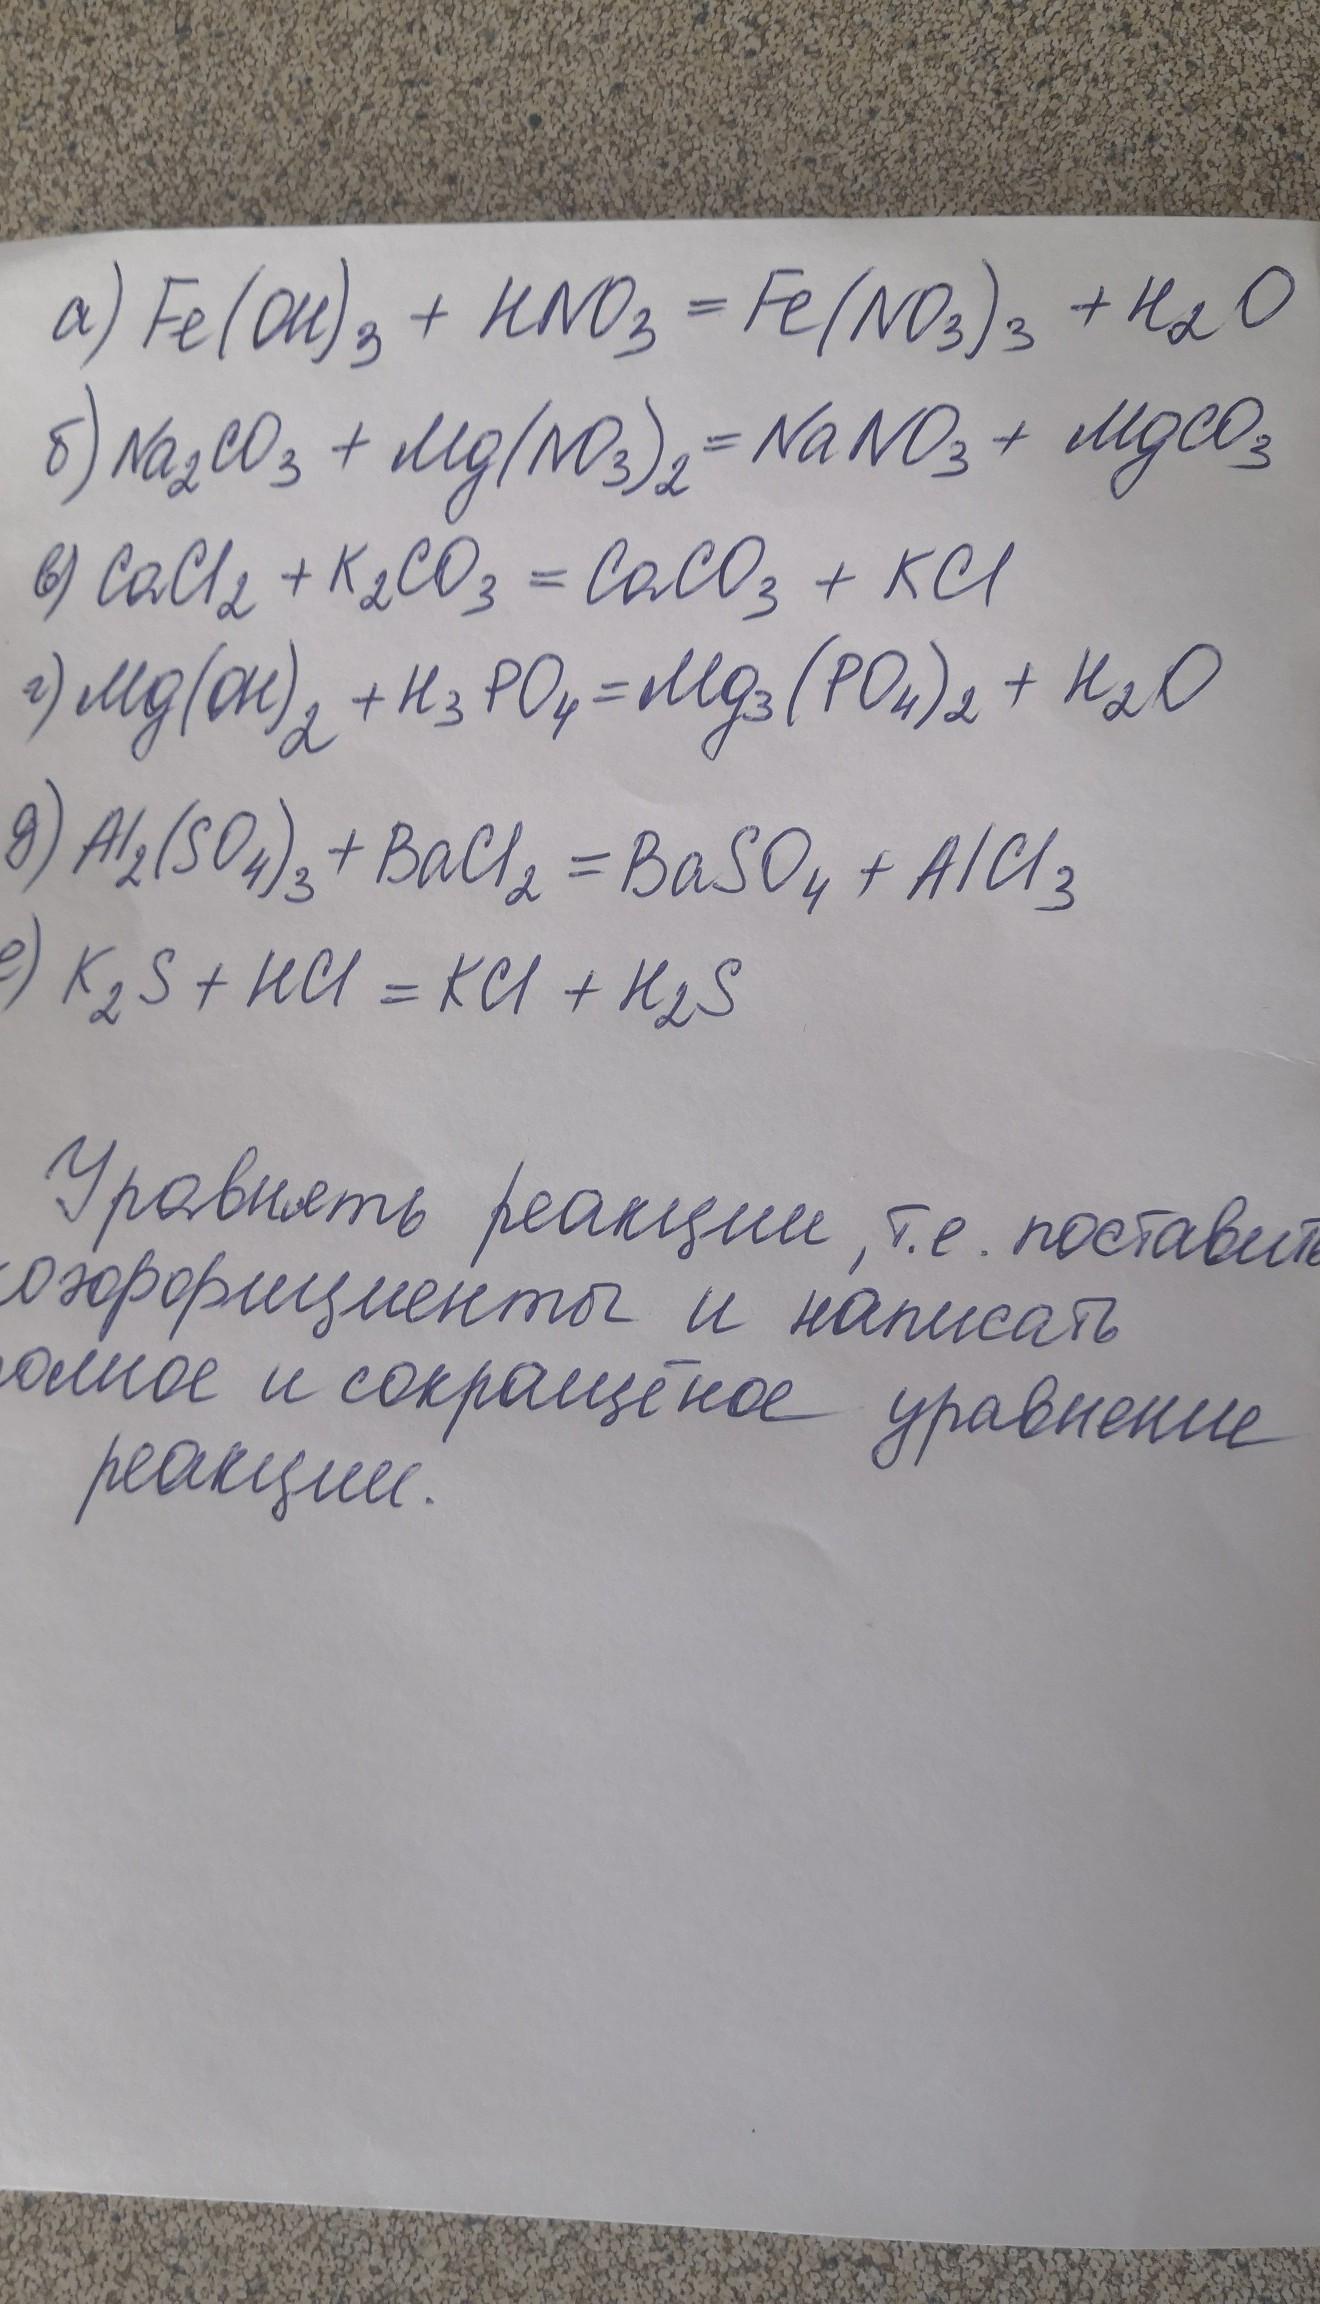 а) Fe(OH)₃ + HNO₃ = Fe(NO₃)₃ + H₂O
б) Na₂CO₃ + Mg(NO₃)₂ = NaNO₃ + MgCO₃
в) CaCl₂ + K₂CO₃ = CaCO₃ + KCl
г) Mg(OH)₂ + H₃PO₄ = Mg₃(PO₄)₂ + H₂O
д) Al₂(SO₄)₃ + BaCl₂ = BaSO₄ + AlCl₃
е) K₂S + HCl = KCl + H₂S
Уравнять реакции, т.е. поставить
коэффициенты и написать
полное и сокращёное уравнение
реакции.